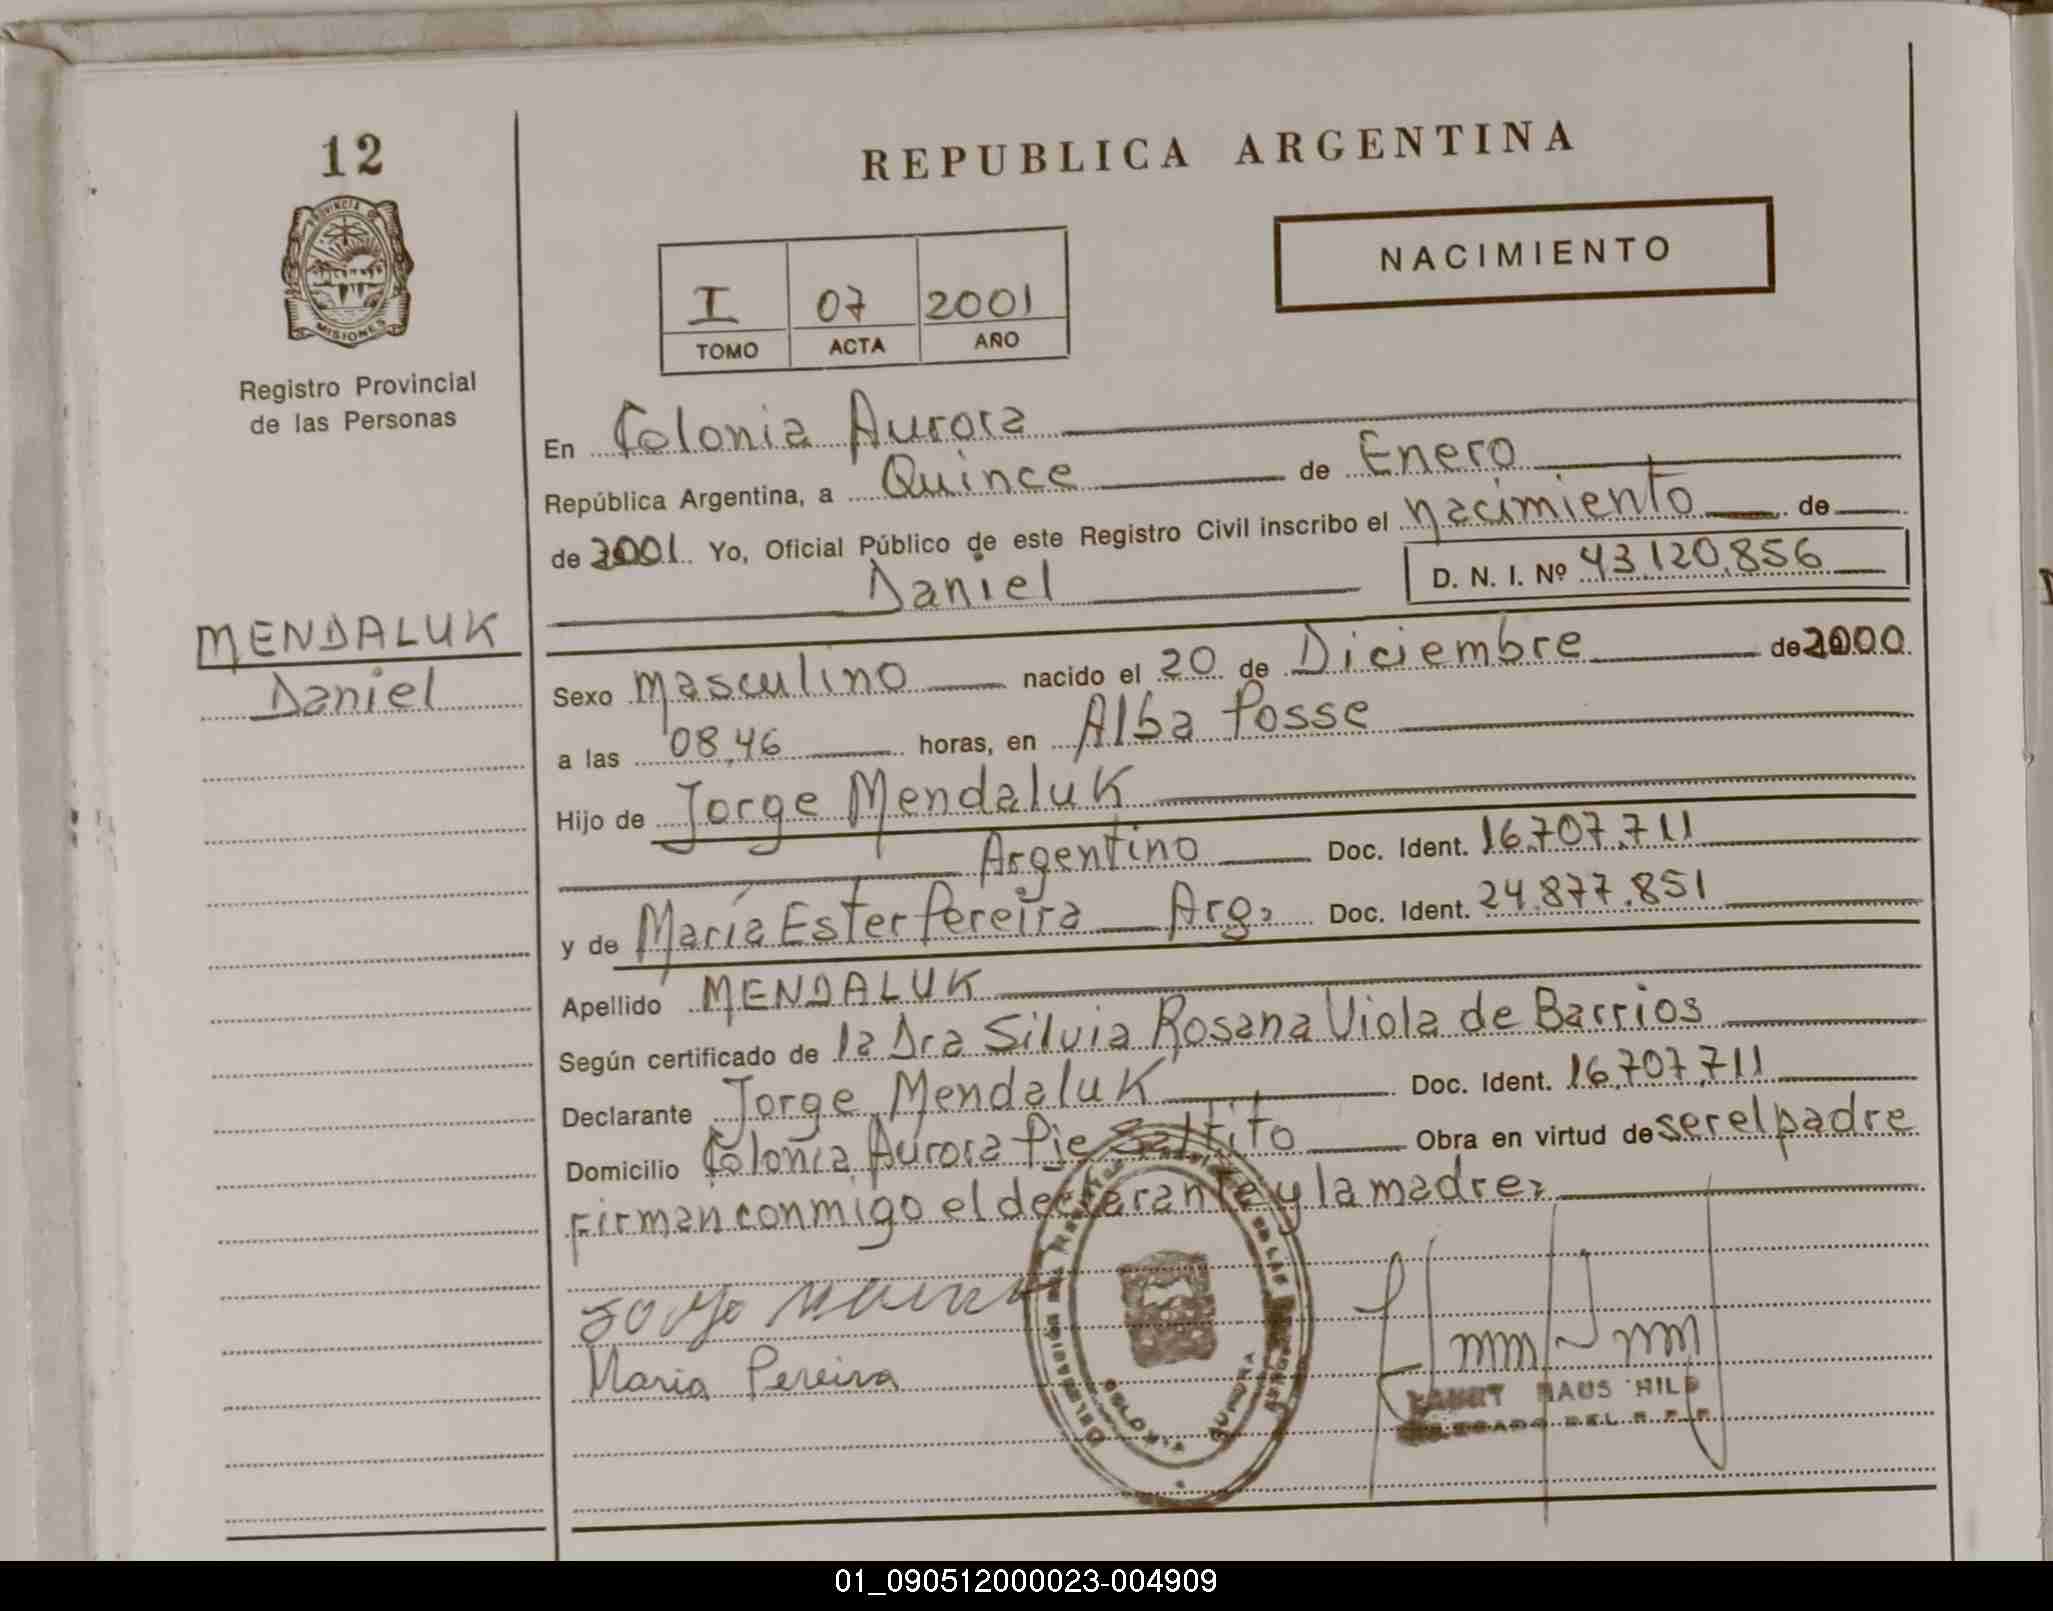 12
PROVINCIA DE
MISIONES
Registro Provincial
de las Personas
MENDALUK
Daniel
REPUBLICA ARGENTINA
NACIMIENTO
I 07 2001
TOMO ACTA AÑO
En Colonia Aurora
República Argentina, a Quince de Enero
de 2001. Yo, Oficial Público de este Registro Civil inscribo el nacimiento de
Daniel D. N. I. Nº 43.120.856
Sexo masculino nacido el 20 de Diciembre de 2000
a las 08,46 horas, en Alba Posse
Hijo de Jorge Mendaluk
Argentino Doc. Ident. 16.707.711
y de María Ester Pereira Arg. Doc. Ident. 24.877.851
Apellido MENDALUK
Según certificado de la Dra Silvia Rosana Viola de Barrios
Declarante Jorge Mendaluk Doc. Ident. 16.707.711
Domicilio Colonia Aurora Pje Saltito Obra en virtud de ser el padre
Firman conmigo el declarante y la madre.
Maria Pereira
COLONIA AURORA
01_090512000023-004909